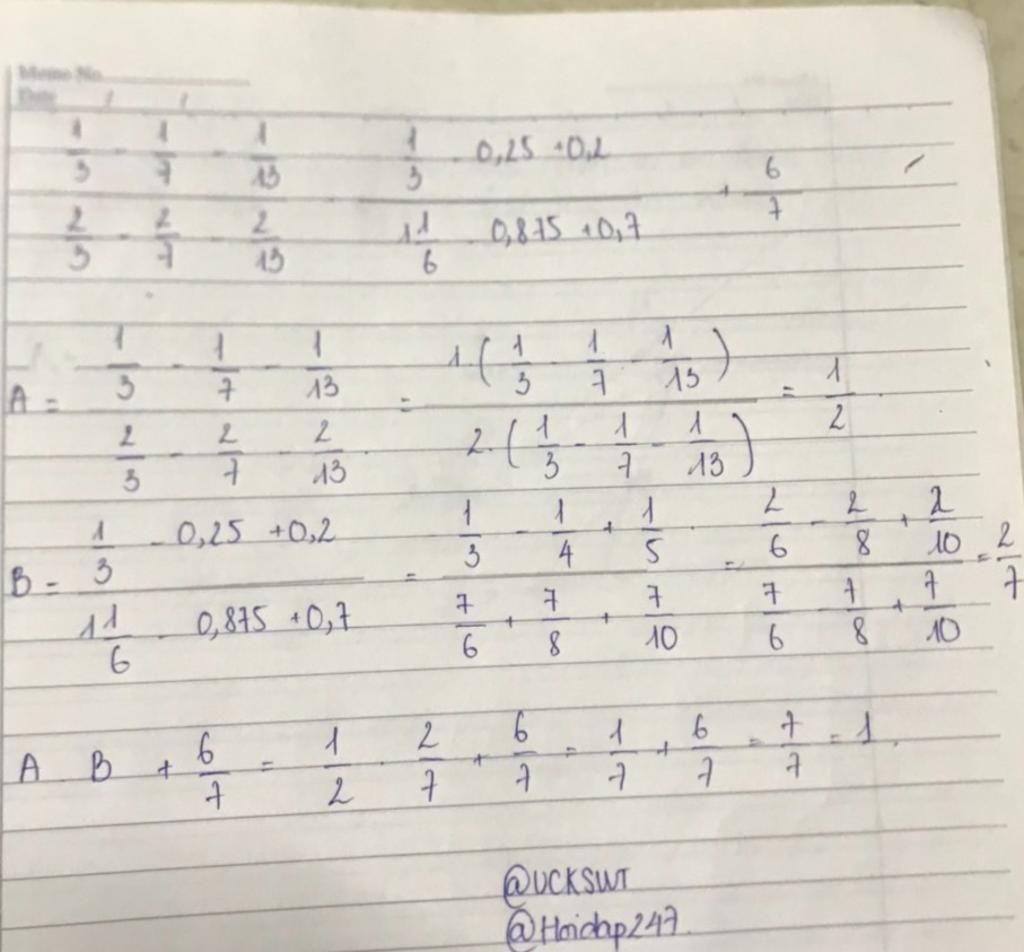 Memo No.
Date / /
1/3 - 1/7 - 1/13 1/3 - 0,25 + 0,2
2/3 - 2/7 - 2/13 · 1 1/6 - 0,875 + 0,7 + 6/7
A = (1/3 - 1/7 - 1/13)/(2/3 - 2/7 - 2/13) = 1.(1/3 - 1/7 - 1/13)/2.(1/3 - 1/7 - 1/13) = 1/2.
B = (1/3 - 0,25 + 0,2)/(1 1/6 - 0,875 + 0,7) = (1/3 - 1/4 + 1/5)/(7/6 + 7/8 + 7/10) = (2/6 - 2/8 + 2/10)/(7/6 - 7/8 + 7/10) = 2/7
A B + 6/7 = 1/2 . 2/7 + 6/7 = 1/7 + 6/7 = 7/7 = 1.
@UCKSWT
@Hoidap247.